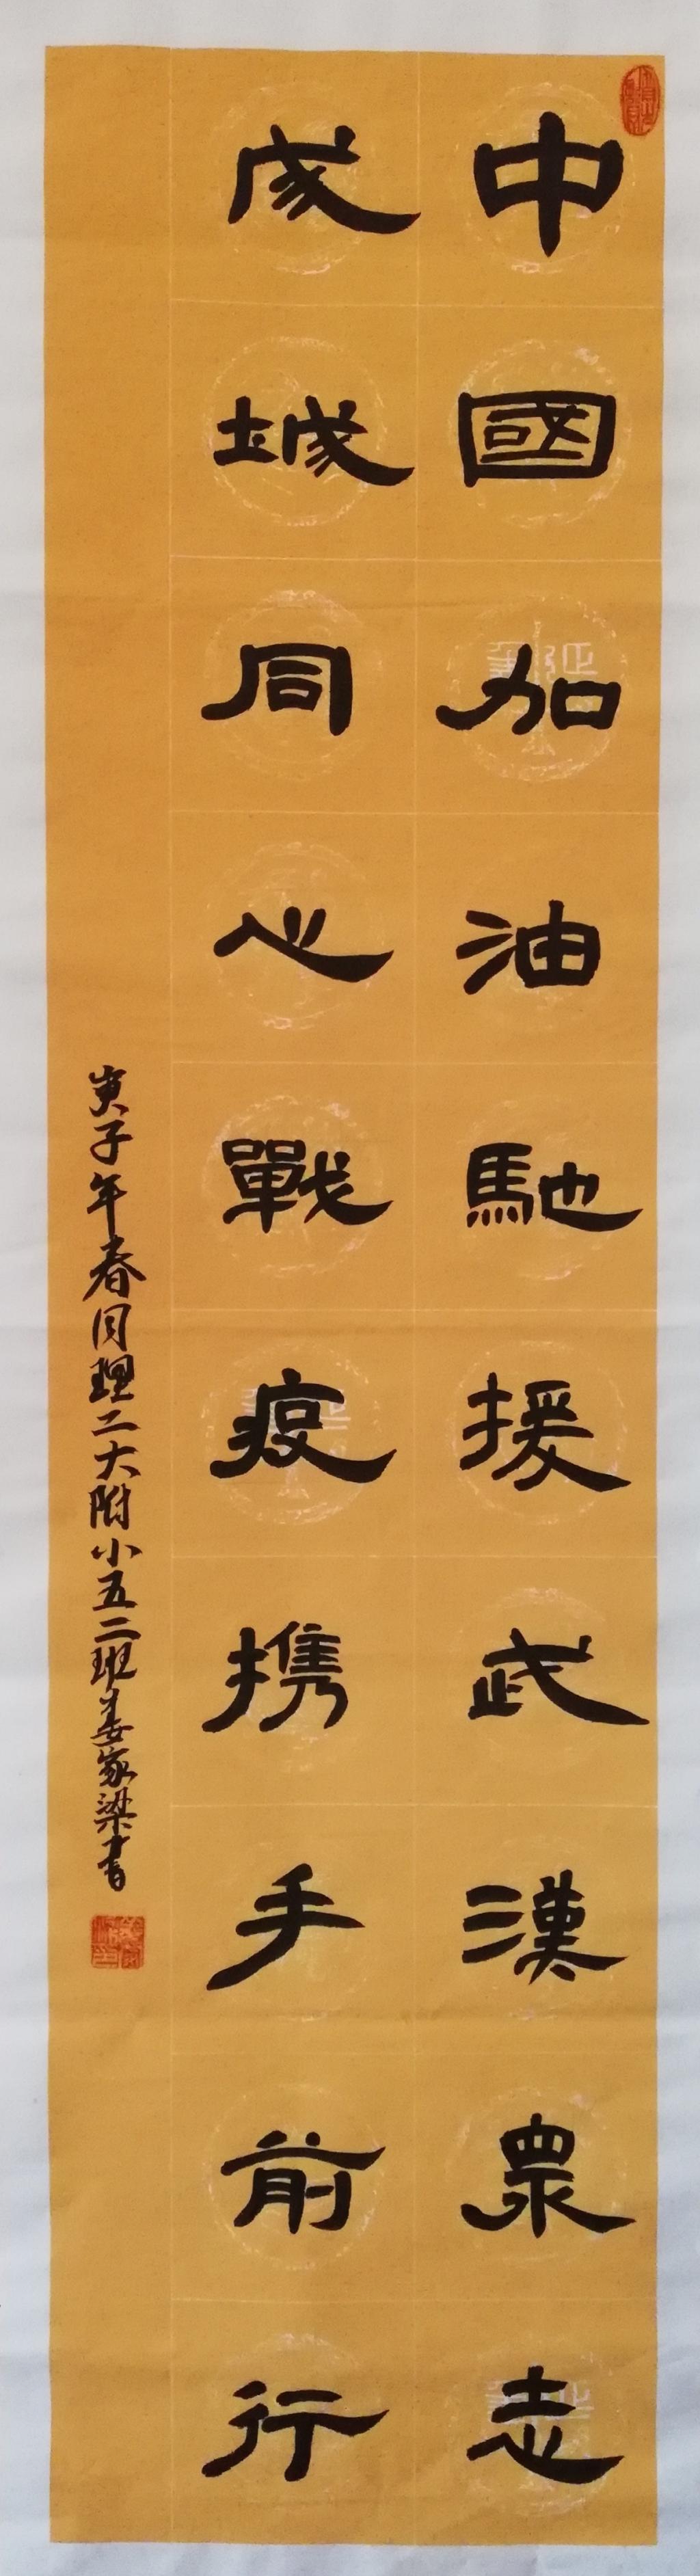 中國加油馳援武漢眾志
成城同心戰疫携手前行
庚子年春月理工大附小五二班姜家梁書